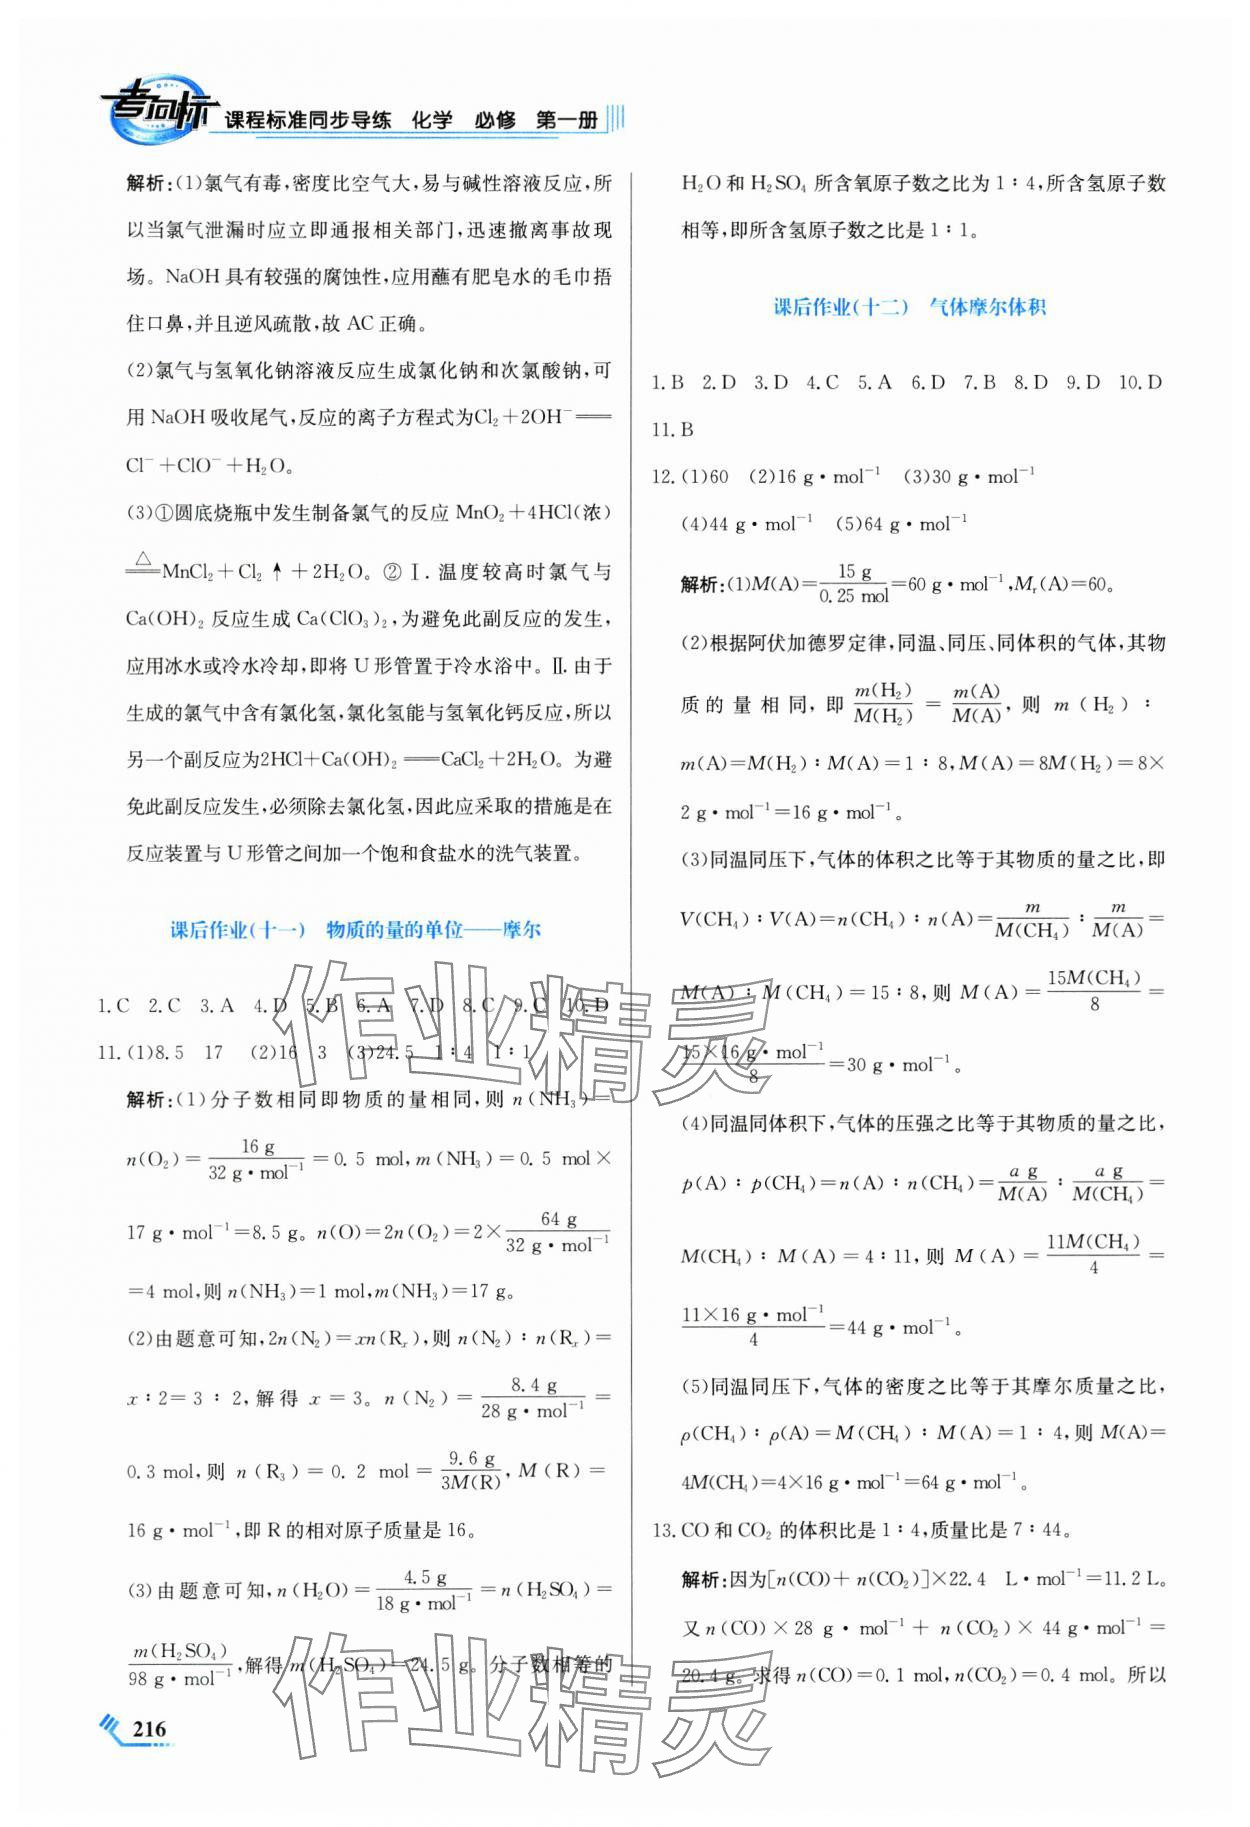 考向标
课程标准同步导练 化学 必修 第一册
解析:(1)氯气有毒,密度比空气大,易与碱性溶液反应,所
以当氯气泄漏时应立即通报相关部门,迅速撤离事故现
场。NaOH 具有较强的腐蚀性,应用蘸有肥皂水的毛巾捂
住口鼻,并且逆风疏散,故 AC 正确。
(2)氯气与氢氧化钠溶液反应生成氯化钠和次氯酸钠,可
用 NaOH 吸收尾气,反应的离子方程式为Cl₂+2OH⁻══
Cl⁻+ClO⁻+H₂O。
(3)①圆底烧瓶中发生制备氯气的反应 MnO₂+4HCl(浓)
══(△)MnCl₂+Cl₂↑+2H₂O。②Ⅰ.温度较高时氯气与
Ca(OH)₂ 反应生成 Ca(ClO₃)₂,为避免此副反应的发生,
应用冰水或冷水冷却,即将 U 形管置于冷水浴中。Ⅱ.由于
生成的氯气中含有氯化氢,氯化氢能与氢氧化钙反应,所以
另一个副反应为2HCl+Ca(OH)₂══CaCl₂+2H₂O。为避
免此副反应发生,必须除去氯化氢,因此应采取的措施是在
反应装置与 U 形管之间加一个饱和食盐水的洗气装置。
课后作业(十一) 物质的量的单位——摩尔
1.C 2.C 3.A 4.D 5.B 6.A 7.D 8.C 9.C 10.D
11.(1)8.5 17 (2)16 3 (3)24.5 1∶4 1∶1
解析:(1)分子数相同即物质的量相同,则 n(NH₃)=
n(O₂)=16 g/32 g·mol⁻¹=0.5 mol,m(NH₃)=0.5 mol×
17 g·mol⁻¹=8.5 g。n(O)=2n(O₂)=2×64 g/32 g·mol⁻¹
=4 mol,则 n(NH₃)=1 mol,m(NH₃)=17 g。
(2)由题意可知,2n(N₂)=xn(Rₓ),则 n(N₂)∶n(Rₓ)=
x∶2=3∶2,解得 x=3。n(N₂)=8.4 g/28 g·mol⁻¹=
0.3 mol,则 n(R₃)=0.2 mol=9.6 g/3M(R),M(R)=
16 g·mol⁻¹,即 R 的相对原子质量是 16。
(3)由题意可知,n(H₂O)=4.5 g/18 g·mol⁻¹=n(H₂SO₄)=
m(H₂SO₄)/98 g·mol⁻¹,解得 m(H₂SO₄)=24.5 g。分子数相等的
216
H₂O 和 H₂SO₄ 所含氧原子数之比为 1∶4,所含氢原子数
相等,即所含氢原子数之比是 1∶1。
课后作业(十二) 气体摩尔体积
1.B 2.D 3.D 4.C 5.A 6.D 7.B 8.D 9.D 10.D
11.B
12.(1)60 (2)16 g·mol⁻¹ (3)30 g·mol⁻¹
(4)44 g·mol⁻¹ (5)64 g·mol⁻¹
解析:(1)M(A)=15 g/0.25 mol=60 g·mol⁻¹,Mᵣ(A)=60。
(2)根据阿伏加德罗定律,同温、同压、同体积的气体,其物
质的量相同,即 m(H₂)/M(H₂)=m(A)/M(A),则 m(H₂)∶
m(A)=M(H₂)∶M(A)=1∶8,M(A)=8M(H₂)=8×
2 g·mol⁻¹=16 g·mol⁻¹。
(3)同温同压下,气体的体积之比等于其物质的量之比,即
V(CH₄)∶V(A)=n(CH₄)∶n(A)=m/M(CH₄)∶m/M(A)=
M(A)∶M(CH₄)=15∶8,则 M(A)=15M(CH₄)/8=
15×16 g·mol⁻¹/8=30 g·mol⁻¹。
(4)同温同体积下,气体的压强之比等于其物质的量之比,
p(A)∶p(CH₄)=n(A)∶n(CH₄)=a g/M(A)∶a g/M(CH₄)=
M(CH₄)∶M(A)=4∶11,则 M(A)=11M(CH₄)/4=
11×16 g·mol⁻¹/4=44 g·mol⁻¹。
(5)同温同压下,气体的密度之比等于其摩尔质量之比,
ρ(CH₄)∶ρ(A)=M(CH₄)∶M(A)=1∶4,则 M(A)=
4M(CH₄)=4×16 g·mol⁻¹=64 g·mol⁻¹。
13.CO 和 CO₂ 的体积比是 1∶4,质量比是 7∶44。
解析:因为[n(CO)+n(CO₂)]×22.4 L·mol⁻¹=11.2 L。
又 n(CO)×28 g·mol⁻¹+n(CO₂)×44 g·mol⁻¹=
20.4 g。求得 n(CO)=0.1 mol,n(CO₂)=0.4 mol。所以
作业精灵
作业精灵